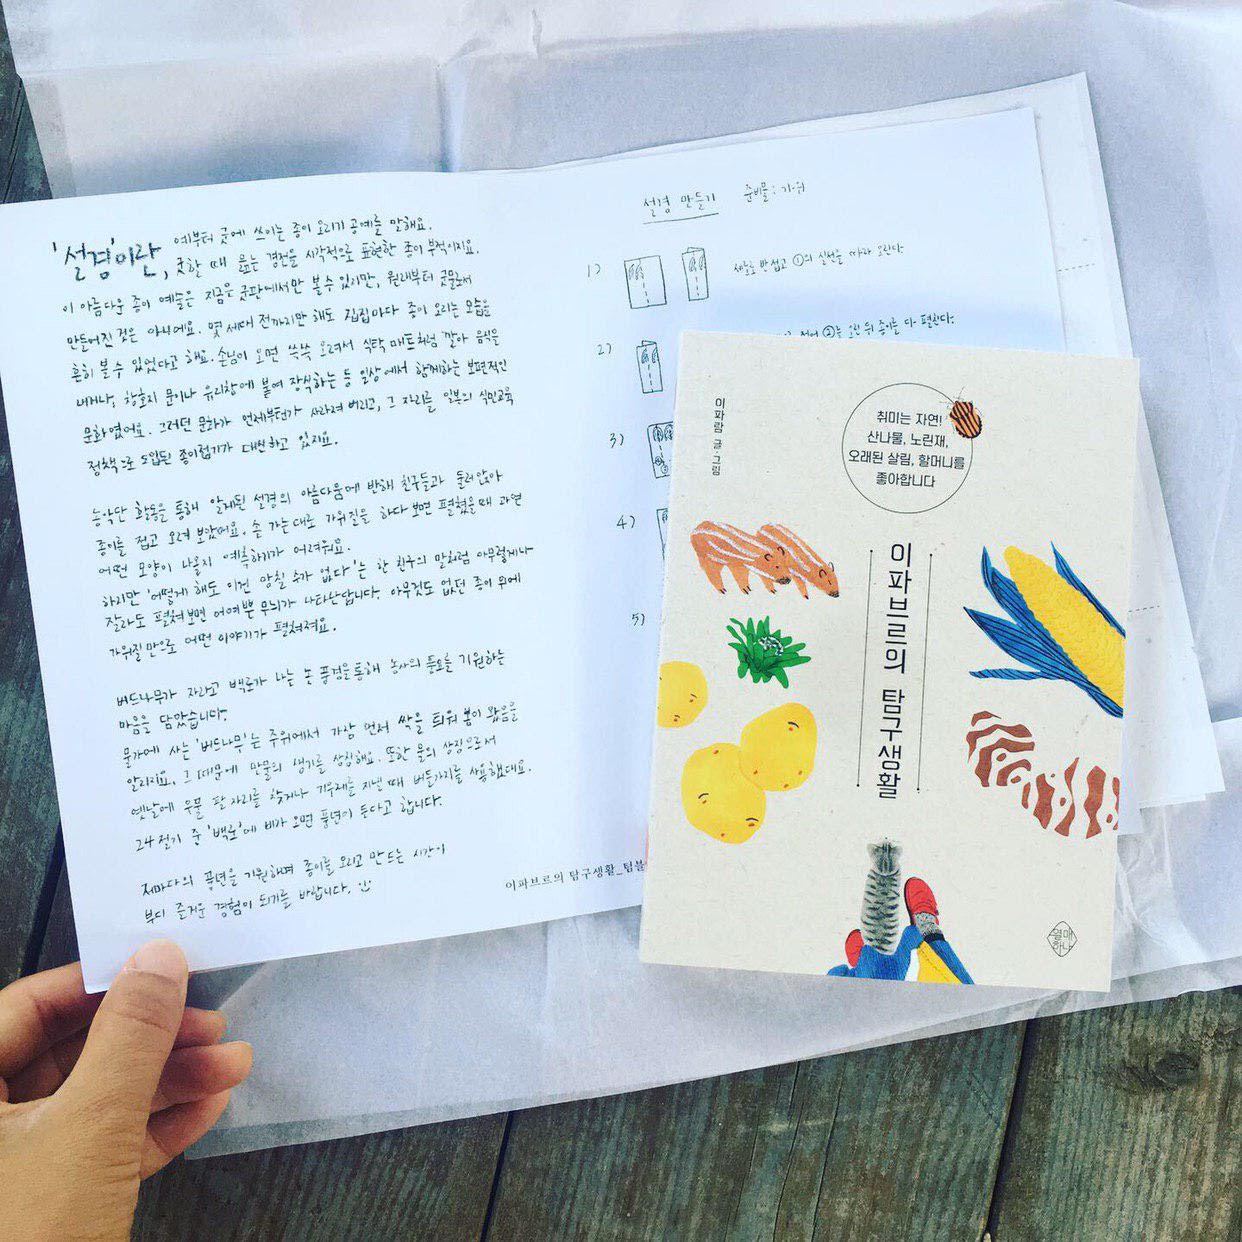 '설경'이란, 예부터 굿에 쓰이는 종이 오리기 공예를 말해요.
굿할 때 읊는 경전을 시각적으로 표현한 종이 부적이지요.
이 아름다운 종이 예술은 지금은 굿판에서만 볼 수 있지만, 원래부터 굿물로서
만들어진 것은 아니에요. 몇 세대 전까지만 해도 집집마다 종이 오리는 모습을
흔히 볼 수 있었다고 해요. 손님이 오면 쓱쓱 오려서 식탁 매트처럼 깔아 음식을
내거나, 창호지 문이나 유리창에 붙여 장식하는 등 일상에서 함께하는 보편적인
문화였어요. 그러던 문화가 언제부턴가 사라져 버리고, 그 자리를 일본의 식민교육
정책으로 도입된 종이접기가 대신하고 있지요.
농악단 활동을 통해 알게된 설경의 아름다움에 반해 친구들과 둘러앉아
종이를 접고 오려 보았어요. 손 가는대로 가위질을 하다 보면 펼쳤을 때 과연
어떤 모양이 나올지 예측하기가 어려워요.
하지만 '어떻게 해도 이건 망칠 수가 없다'는 한 친구의 말처럼 아무렇게나
잘라도 펼쳐보면 어여쁜 무늬가 나타난답니다. 아무것도 없던 종이 위에
가위질만으로 어떤 이야기가 펼쳐져요.
버드나무가 자라고 백로가 나는 논 풍경을 통해 농사의 풍요를 기원하는
마음을 담았습니다.
물가에 사는 '버드나무'는 주위에서 가장 먼저 싹을 틔워 봄이 왔음을
알리지요. 그 때문에 만물의 생기를 상징해요. 또한 물의 상징으로서
옛날에 우물 팔 자리를 찾거나 기우제를 지낼 때 버들가지를 사용했대요.
24절기 중 '백로'에 비가 오면 풍년이 든다고 합니다.
저마다의 풍년을 기원하며 종이를 오리고 만드는 시간이
부디 즐거운 경험이 되기를 바랍니다.
이파브르의 탐구생활_텀블
설경 만들기 준비물 : 가위
1) 세로로 반 접고 ①의 실선을 따라 오린다.
2) 접어 ②를 오린 뒤 종이를 다 펼친다.
3)
4)
5)
이파람 글·그림
취미는 자연!
산나물, 노린재,
오래된 살림, 할머니를
좋아합니다
이파브르의 탐구생활
열매
하나